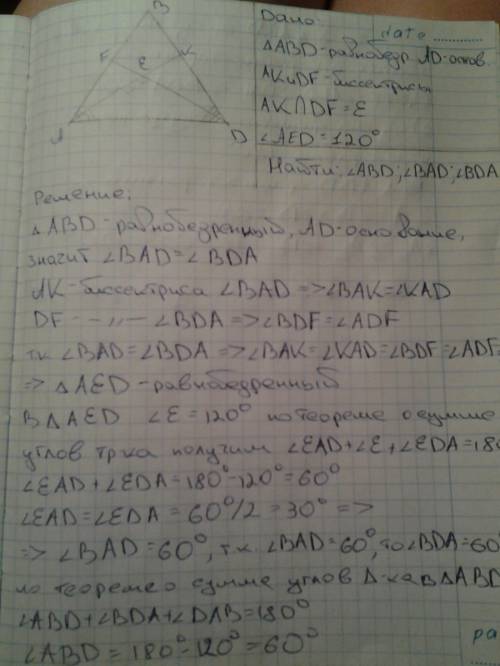 B
F
E
K
A
D
Дано:
date
△ABD-равнобедр AD-основ.
AK и DF-биссектрисы
AK∩DF=E
∠AED=120°
Найти: ∠ABD; ∠BAD; ∠BDA
Решение:
△ABD-равнобедренный, AD-основание,
значит ∠BAD=∠BDA
AK-биссектриса ∠BAD =>∠BAK=∠KAD
DF -„- ∠BDA =>∠BDF=∠ADF
т.к ∠BAD=∠BDA =>∠BAK=∠KAD=∠BDF=∠ADF=
=> △AED-равнобедренный
В △AED ∠E=120° по теореме о сумме
углов тр.ка получим ∠EAD+∠E+∠EDA=180
∠EAD+∠EDA=180°-120°=60°
∠EAD=∠EDA=60°/2=30° =>
=> ∠BAD=60°, т.к. ∠BAD=60°, то ∠BDA=60°
по теореме о сумме углов △-ка в △ABD
∠ABD+∠BDA+∠DAB=180°
∠ABD=180°-120°=60°
ра